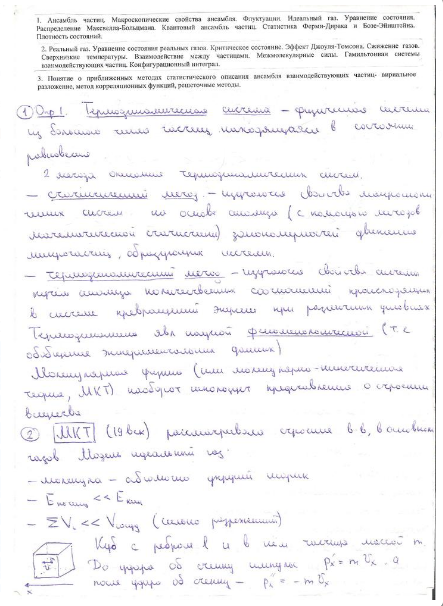 1. Ансамбль частиц. Макроскопические свойства ансамбля. Флуктуации. Идеальный газ. Уравнение состояния.
Распределение Максвелла-Больцмана. Квантовый ансамбль частиц. Статистика Ферми-Дирака и Бозе-Эйнштейна.
Плотность состояний.
2. Реальный газ. Уравнение состояния реальных газов. Критическое состояние. Эффект Джоуля-Томсона. Сжижение газов.
Сверхнизкие температуры. Взаимодействие между частицами. Межмолекулярные силы. Гамильтониан системы
взаимодействующих частиц. Конфигурационный интеграл.
3. Понятие о приближенных методах статистического описания ансамбля взаимодействующих частиц- вириальное
разложение, метод корреляционных функций, решеточные методы.
① Опр 1. Термодинамическая система – физическая система
из большого числа частиц находящаяся в состоянии
равновесия
2 метода описания термодинамических систем.
– статистический метод – изучаются свойства макроскопи
ческих систем на основе анализа (с помощью методов
математической статистики) закономерностей движения
микрочастиц, образующих системы.
– термодинамический метод – изучаются свойства системы
путем анализа количественных соотношений происходящих
в системе превращений энергии при различных условиях
Термодинамика явл наукой феноменологической (т.е
обобщение экспериментальных данных)
Молекулярная физика (или молекулярно-кинетическая
теория, МКТ) наоборот использует представления о строении
вещества
② МКТ (19 век) рассматривала строение в-в, в основном
газов Модель идеальный газ:
– молекула – абсолютно упругий шарик
– E << E кин
– ΣV << V (сильно разреженный)
Куб с ребром l и в нем частица массой m.
До удара об стенку импульс Px' = m Vx, а
после удара об стенку – Px'' = - m Vx
x